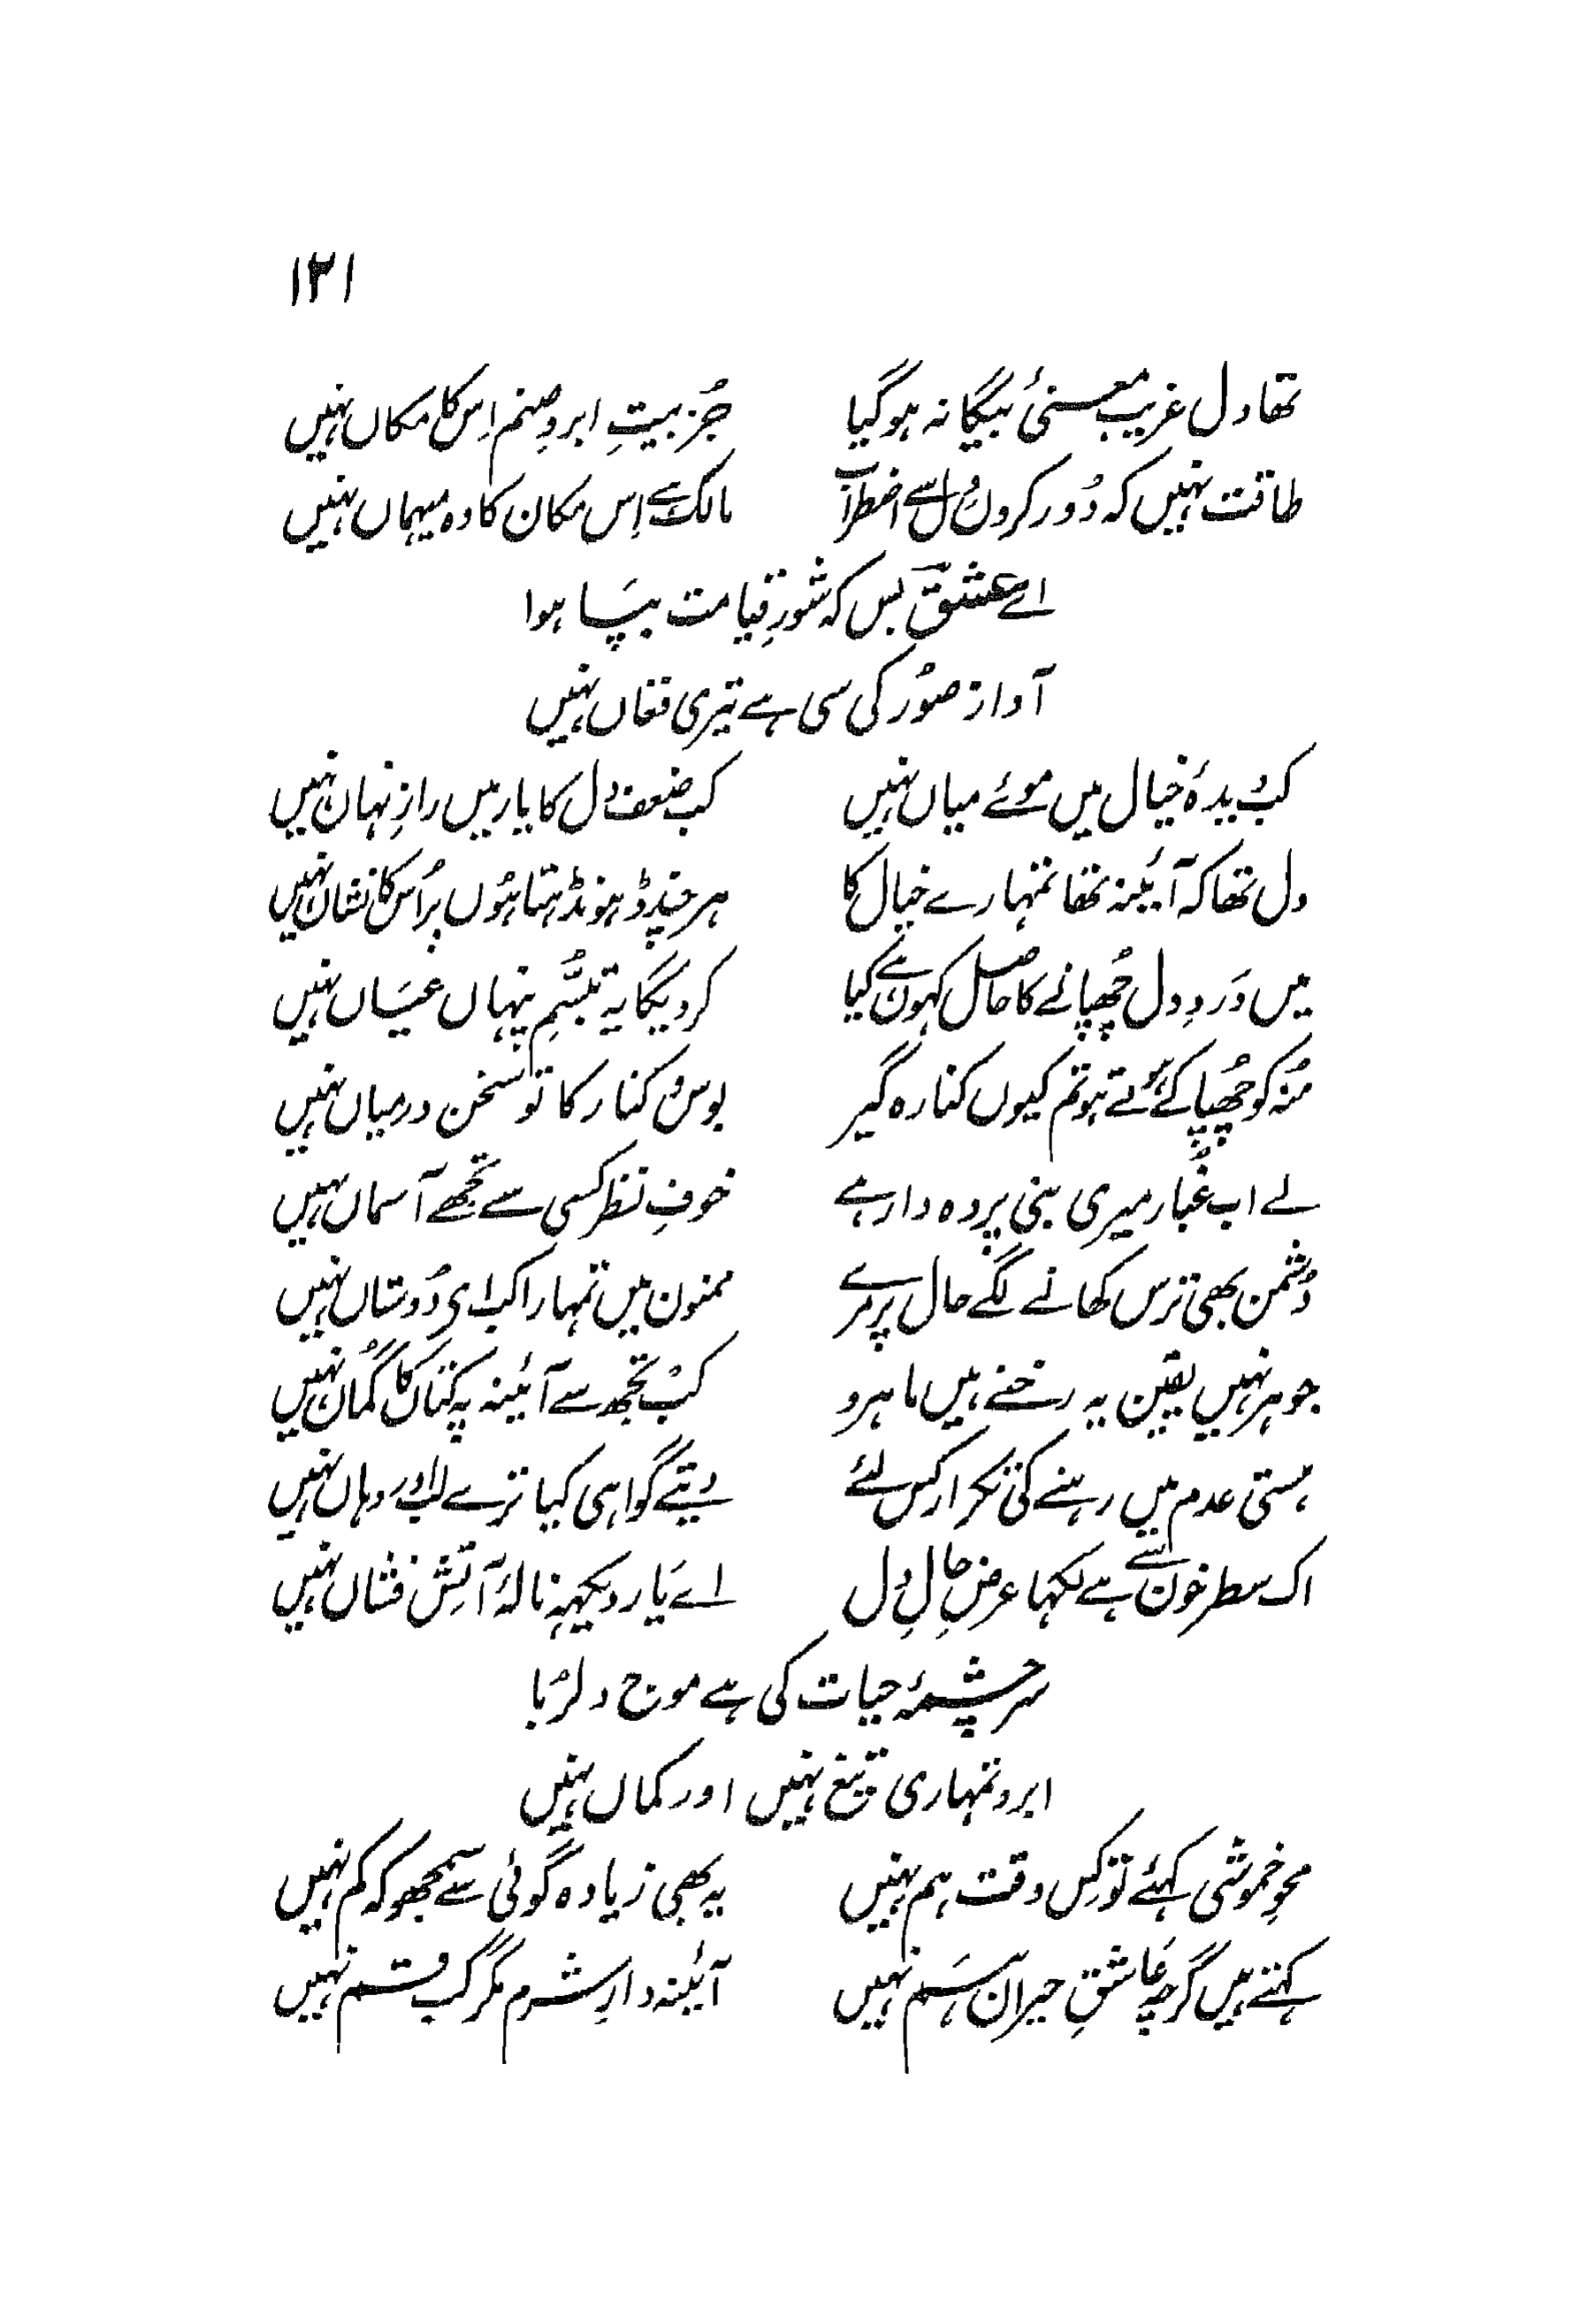 ۱۲۱
تھا دل غریب معنئ بیگانہ ہو گیا جُز بیتِ ابروِ صنم اِس کا مکاں نہیں
طاقت نہیں کہ دُور کروں دل سے اضطراب مالک ہے اِس مکان کا وہ میہماں نہیں
اے عشقؔ بس کہ شورِ قیامت بپَا ہوا
آواز صوُر کی سی ہے تیری فغاں نہیں
کب دیدۂ خیال میں موئے میاں نہیں کب ضعف دل کا یار میں رازِ نہان نہیں
دل تھا کہ آئینہ تھا تمہارے خیال کا ہر چند ڈہونڈہتا ہُوں پر اُس کا نشان نہیں
میں دَردِ دل چُھپانے کا حاصل کہوں ہے کیا کر دیگا یہ تبسُّمِ پنہاں عیَاں نہیں
مُنہ کو چُھپا کے ہوئے ہو تم کیوں کنارہ گیر بوس و کنار کا تو سخن درمیاں نہیں
لے اب غُبار میری بنی پردہ دار ہے خوفِ نظر کسی سے تجھے آسماں نہیں
دُشمن بھی ترس کھانے لگے حال پر مرے ممنون میں تمہارا کب ای دُوستاں نہیں
جوہر نہیں یقین یہ رخنے ہیں ماہرو کبْ تجھ سے آئینہ پہ کتاں کا گُماں نہیں
ہستی عدم میں رہنے کی تکرار کس لئے دیتے گواہی کیا ترے لب اور دہاں نہیں
اک سطر خون سے ہے لکہا عرضِ حالِ دل اے یَار دیکہہ نالۂ آتش فشاں نہیں
سرچشمۂ حیات کی ہے موج دلرُبا
ابرو تمہاری تیغ نہیں اور کماں نہیں
محوِ خموشی کہئے تو کِس وقت ہم نہیں یہ بھی زیادہ گوئی سے سمجھو کہ کم نہیں
کہتے ہیں گرچہ عَاشقِ حیران ہَم نہیں آئینہ دارِ شرم مگر کب قسم نہیں